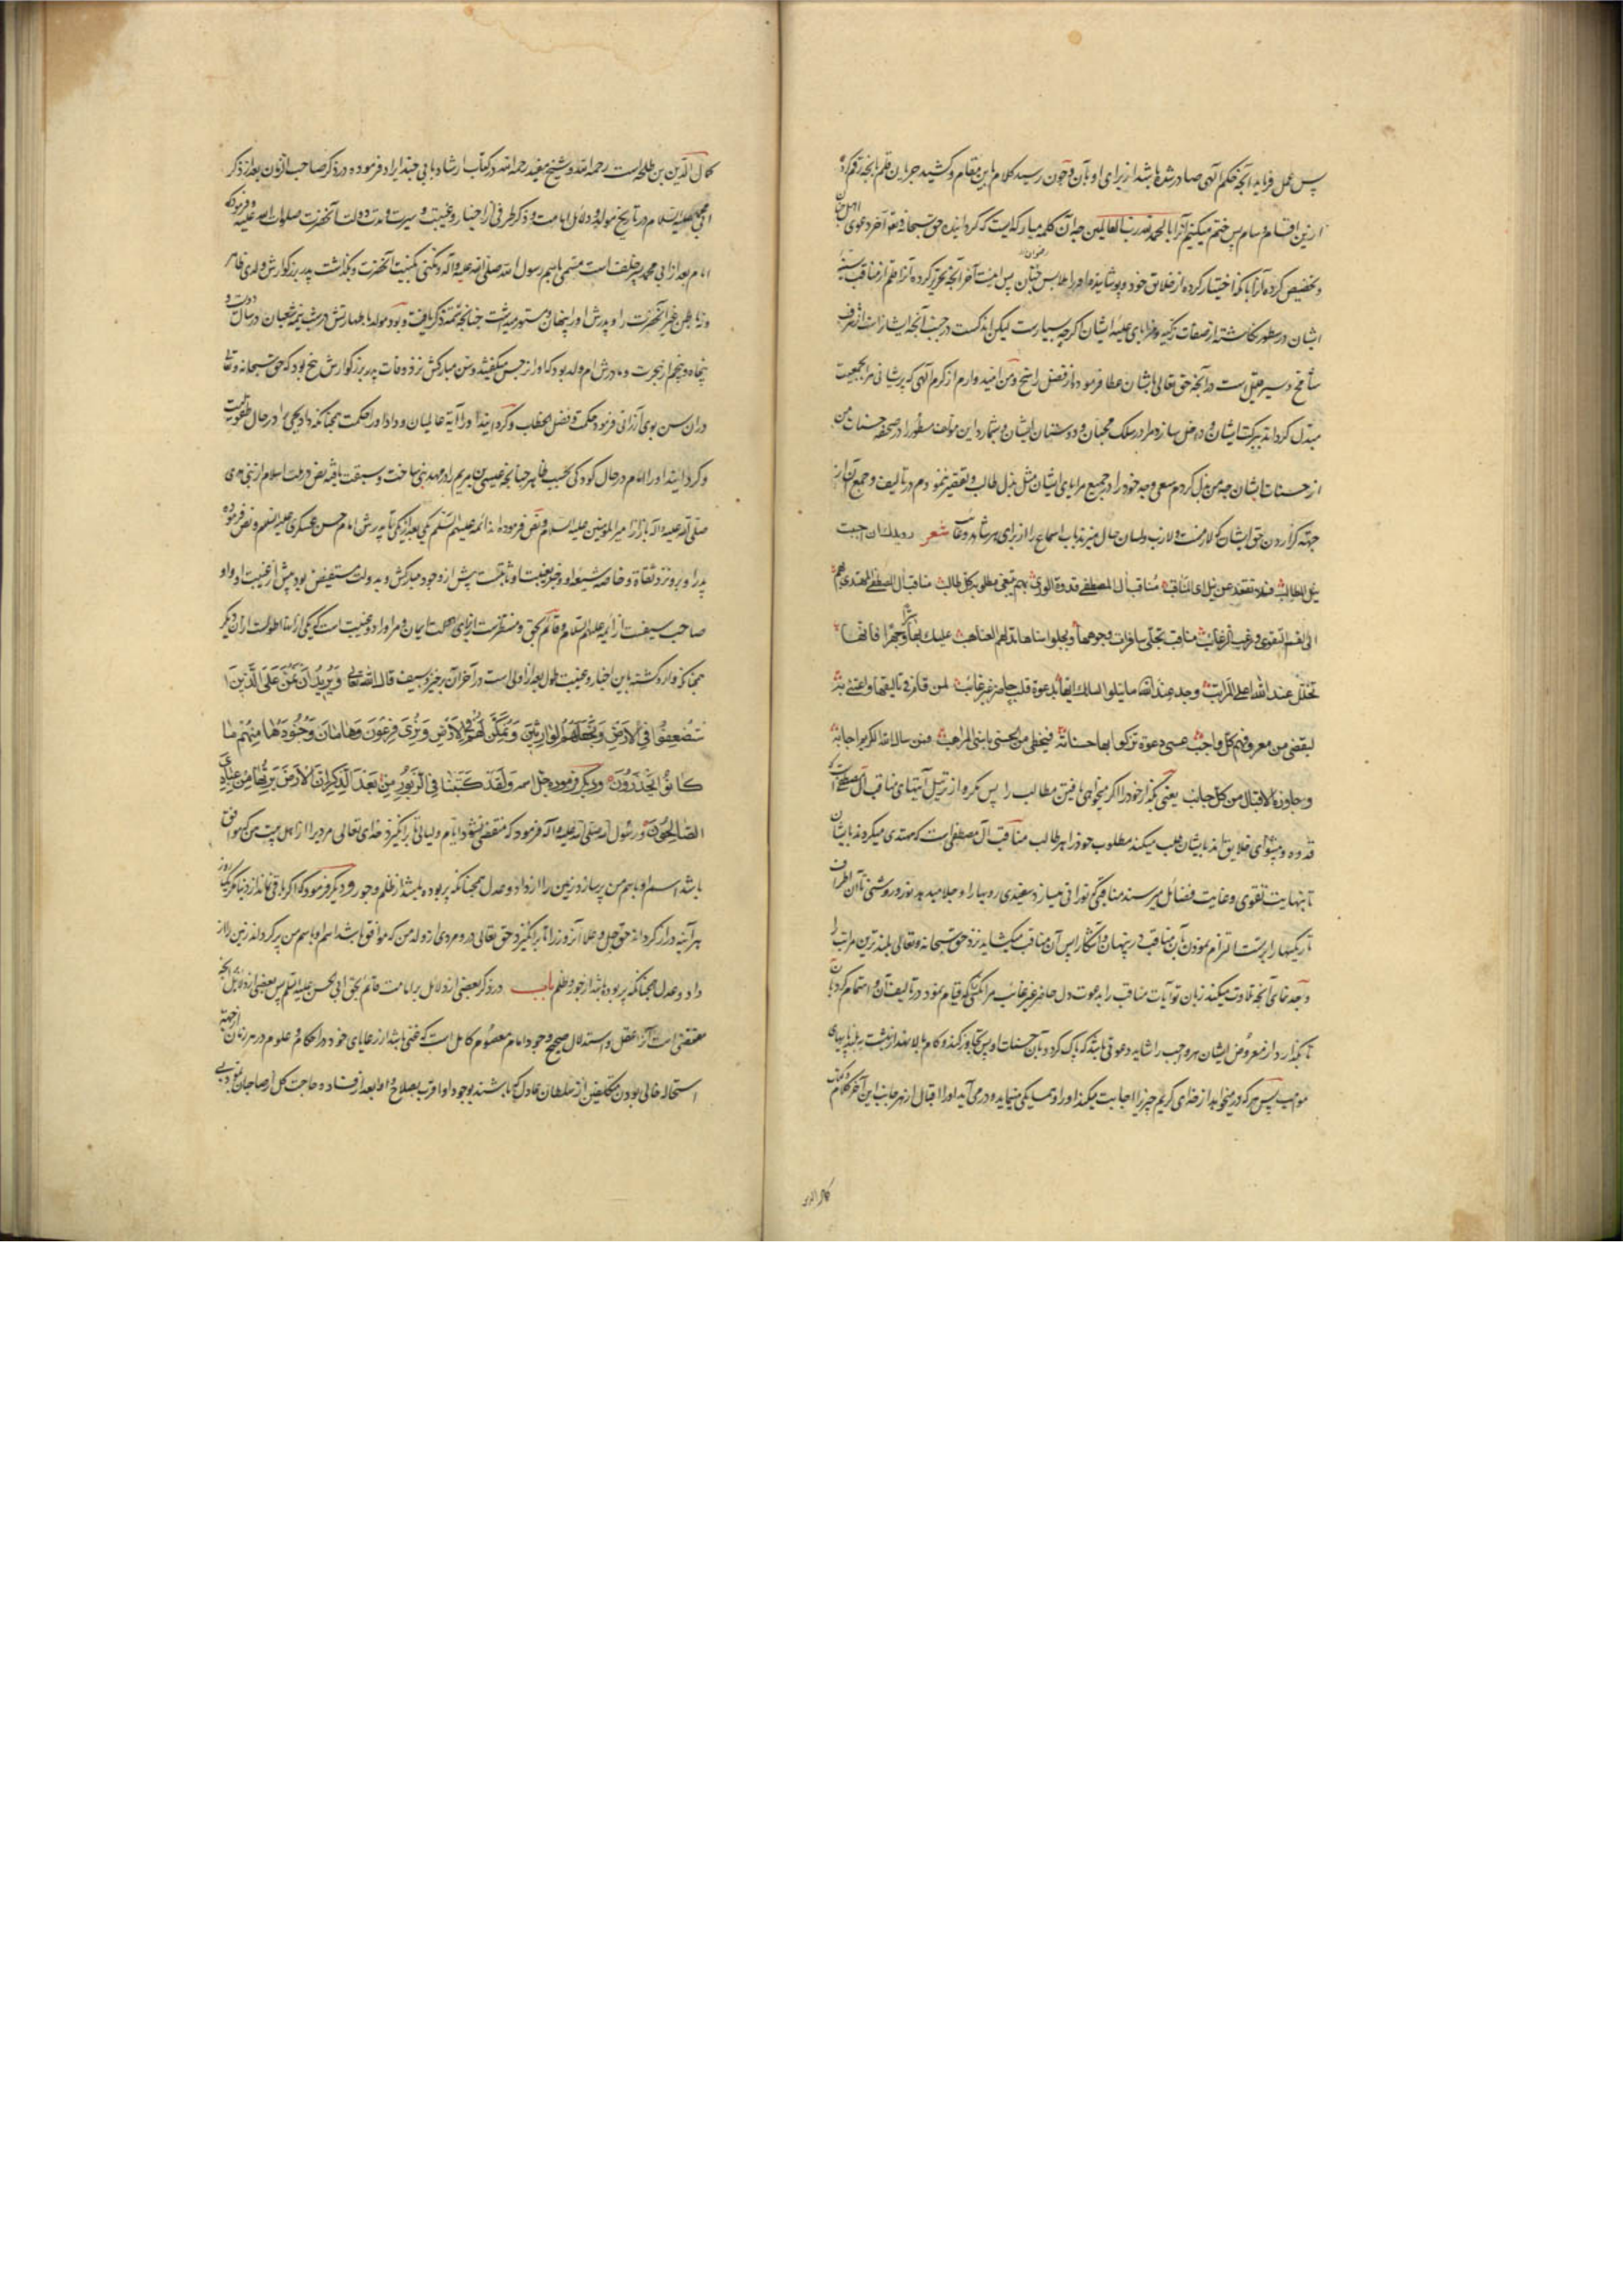 پس عمل فرماید آنچه بحکم الهی صادر شده باشد از برای او بآن و چون رسید کلام باین مقام و کشید جریان قلم بآنچه رقم کرد
ازین اقسام و سام پس ختم میکنیم آنرا بالحمد لله رب العالمین چه آن کلمه مبارکه ایست که گردانیده حق سبحانه و تعالی آخر دعوی اهل جنان
و تخصیص کرده آنرا بآنکه اختیار کرده از خلایق خود و پوشانیده او را ملابس رضوان پس اینست آخر آنچه تحریر کرده آنرا قلم از مناقب سنیه
ایشان در سطور نگاشته از صفات زکیه و مزایای علیه ایشان اگرچه بسیارست لیکن اندکست در جنب آنچه ایشانراست از شرف
شامخ و سیر جمیل است و آنچه حق تعالی بایشان عطا فرموده از فضل راسخ و من امیدوارم از کرم الهی که پریشانی مرا بجمعیت
مبدل گرداند ببرکت ایشان و داخل سازد مرا در سلک محبان و دوستان ایشان و شمارد این مؤلف مسطور را در صحیفه حسنات من
از حسنات ایشان چه من بذل کردم سعی و جهد خود را در جمیع مزایای ایشان مثل بذل طالب و تقصیر ننمودم در تالیف و جمع آن از
جهة گزاردن حق ایشان که لازمست و لسان حال من باسماع را از برای هر شاهد و غائب شعر رویدک ان احببت
نیل المطالب فلا تقعد عن ترتیل آی المناقب مناقب آل المصطفی قدوة الوری بهم یبتغی مطلوبه کل طالب مناقب آل المصطفی المهتدی بهم
الی نعم التقوی و رغب الرغائب مناقب تجلی سافرات وجوهها و یجلو سناها مدلهم الغیاهب علیک بها سرا و جهرا فانها
تحلک عند الله اعلی المراتب وجد عند ما یتلو لسانک آیها بدعوة قلب حاضر غیر غائب لمن قام فی تالیفها و اعتنی به
لیقضی من معروفهم کل واجب عسی دعوة تزکو بها حسناته فیحظی من الحسنی باسنی المواهب فمن سأل الله الکریم اجابه
و جاوره الاقبال من کل جانب یعنی بگذار خود را اگر میخواهی یافتن مطالب را پس مگرد از ترتیل آیتهای مناقب آل مصطفی که
قدوه و پیشوای خلایق اند بایشان طلب میکند مطلوب خود را هر طالب مناقب آل مصطفی است که مهتدی میگردند بایشان
تا بنهایت تقوی و غایت فضائل میرسند مناقبی که نورانی میسازد سفیدی رویها را و جلا میدهد نور و روشنی آن اطراف
تاریکیها را بر تست التزام نمودن آن مناقب در پنهان و آشکار پس آن مناقب میکشاید نزد حق سبحانه و تعالی بلندترین مراتب را
وجد نمای آنچه تلاوت میکند زبان تو آیات مناقب را بدعوت دل حاضر غیر غایب مر آنکسی که قیام نمود در تالیف آن و اهتمام کرد بآن
تا بگذارد از معروض ایشان هر واجب را شاید دعوتی باشد که پاک گردد بآن حسنات او پس
مواهب پس هر که در میخواهد از خدای کریم چیزی را اجابت میکند او را و همسایگی مینماید و درمی آید او را اقبال از هر جانب این آخر کلام
کمال الدین
کمال الدین بن طلحه است رحمه الله و شیخ مفید رحمه الله در کتاب ارشاد بابی چند ایراد فرموده در ذکر صاحب الزمان بعد از ذکر
ابی محمد علیه السلام در تاریخ مولد و دلائل امامت و ذکر طرفی از اخبار و غیبت و سیرت و مدت دولت آنحضرت صلوات الله علیه و فرموده که
امام بعد از ابی محمد پسر خلف است مسمی باسم رسول الله صلی الله علیه و آله و مکنی بکنیت آنحضرت و نگذاشت پدر بزرگوارش ولدی ظاهر
و نه باطن غیر آنحضرت را و پدرش او را پنهان و مستور میداشت چنانچه سمت ذکر یافت و بود مولد با طهارتش در شب نیمه شعبان در سال دویست و
پنجاه و پنجم از هجرت و مادرش ام ولد بود که او را نرجس میگفتند و سن مبارکش نزد وفات پدر بزرگوارش پنج بود که حق سبحانه و تعالی
در ان سن بوی ارزانی فرمود حکمت و فصل الخطاب و گردانید او را آیة عالمیان و داد او را حکمت همچنانکه داد یحیی را در حال طفولیت
و گردانید او را امام در حال کودکی بحسب ظاهر چنانچه عیسی بن مریم را در مهد نبی ساخت و سبقت یافته نص در ملت اسلام از نبی هدی
صلی الله علیه و آله باز از امیر المؤمنین علیه السلام و نص فرموده اند ائمه علیهم السلام یکی بعد از یکی تا پدرش امام حسن عسکری علیه السلام و نص فرموده
پدر او برو نزد ثقاة و خاصه شیعه او و خبر بغیبت او ثابتست پیش از وجود مبارکش و بدولت مستفیض بود پیش از غیبت او و او
صاحب سیفست از ائمه علیهم السلام و قائم بحق و منتظرست از برای دولت ایمان و مر او را دو غیبت است که یکی از انها اطولست از ان دیگر
همچنانکه وارد گشته باین اخبار و غیبت طول بعد از اولی است در آخر آن برخیزد بسیف قال الله تعالی وَنُرِیدُ اَنْ نَمُنَّ عَلَی الَّذِینَ
اسْتُضْعِفُوا فِی الْاَرْضِ وَنَجْعَلَهُمُ الْوَارِثِینَ وَنُمَکِّنَ لَهُمْ فِی الْاَرْضِ وَنُرِیَ فِرْعَوْنَ وَهَامَانَ وَجُنُودَهُمَا مِنْهُمْ مَا
کَانُوا یَحْذَرُونَ و دیگر فرموده جل اسمه وَلَقَدْ کَتَبْنَا فِی الزَّبُورِ مِنْ بَعْدِ الذِّکْرِ اَنَّ الْاَرْضَ یَرِثُهَا عِبَادِیَ
الصَّالِحُونَ و رسول الله صلی الله علیه و آله فرمود که منقضی نشود ایام و لیالی تا برانگیزد خدای تعالی مردیرا از اهل بیت من که موافق
باشد اسم او باسم من پر سازد زمین را از داد و عدل همچنانکه پر بوده باشد از ظلم و جور و دیگر فرمود که اگر باقی نماند از دنیا مگر یک روز
هر آینه دراز گرداند حق جل و علا آنروز را تا برانگیزد حق تعالی درو مردی از ولد من که موافق باشد اسم او باسم من پر گرداند زمین را از
داد و عدل همچنانکه پر بوده باشد از جور و ظلم باب در ذکر بعضی از دلائل بر امامت قائم بحق ابن الحسن علیه السلام پس بعضی از دلائل آنچه
مقتضی است آنرا عقل و استدلال صحیح وجود امام معصوم کامل است که غنی باشد از رعایای خود در احکام و علوم در هر زمان از جهة
استحاله خالی بودن مکلفین از سلطان عادل که باشند بوجود او اقرب بصلاح و ابعد از فساد و حاجت کل از صاحبان